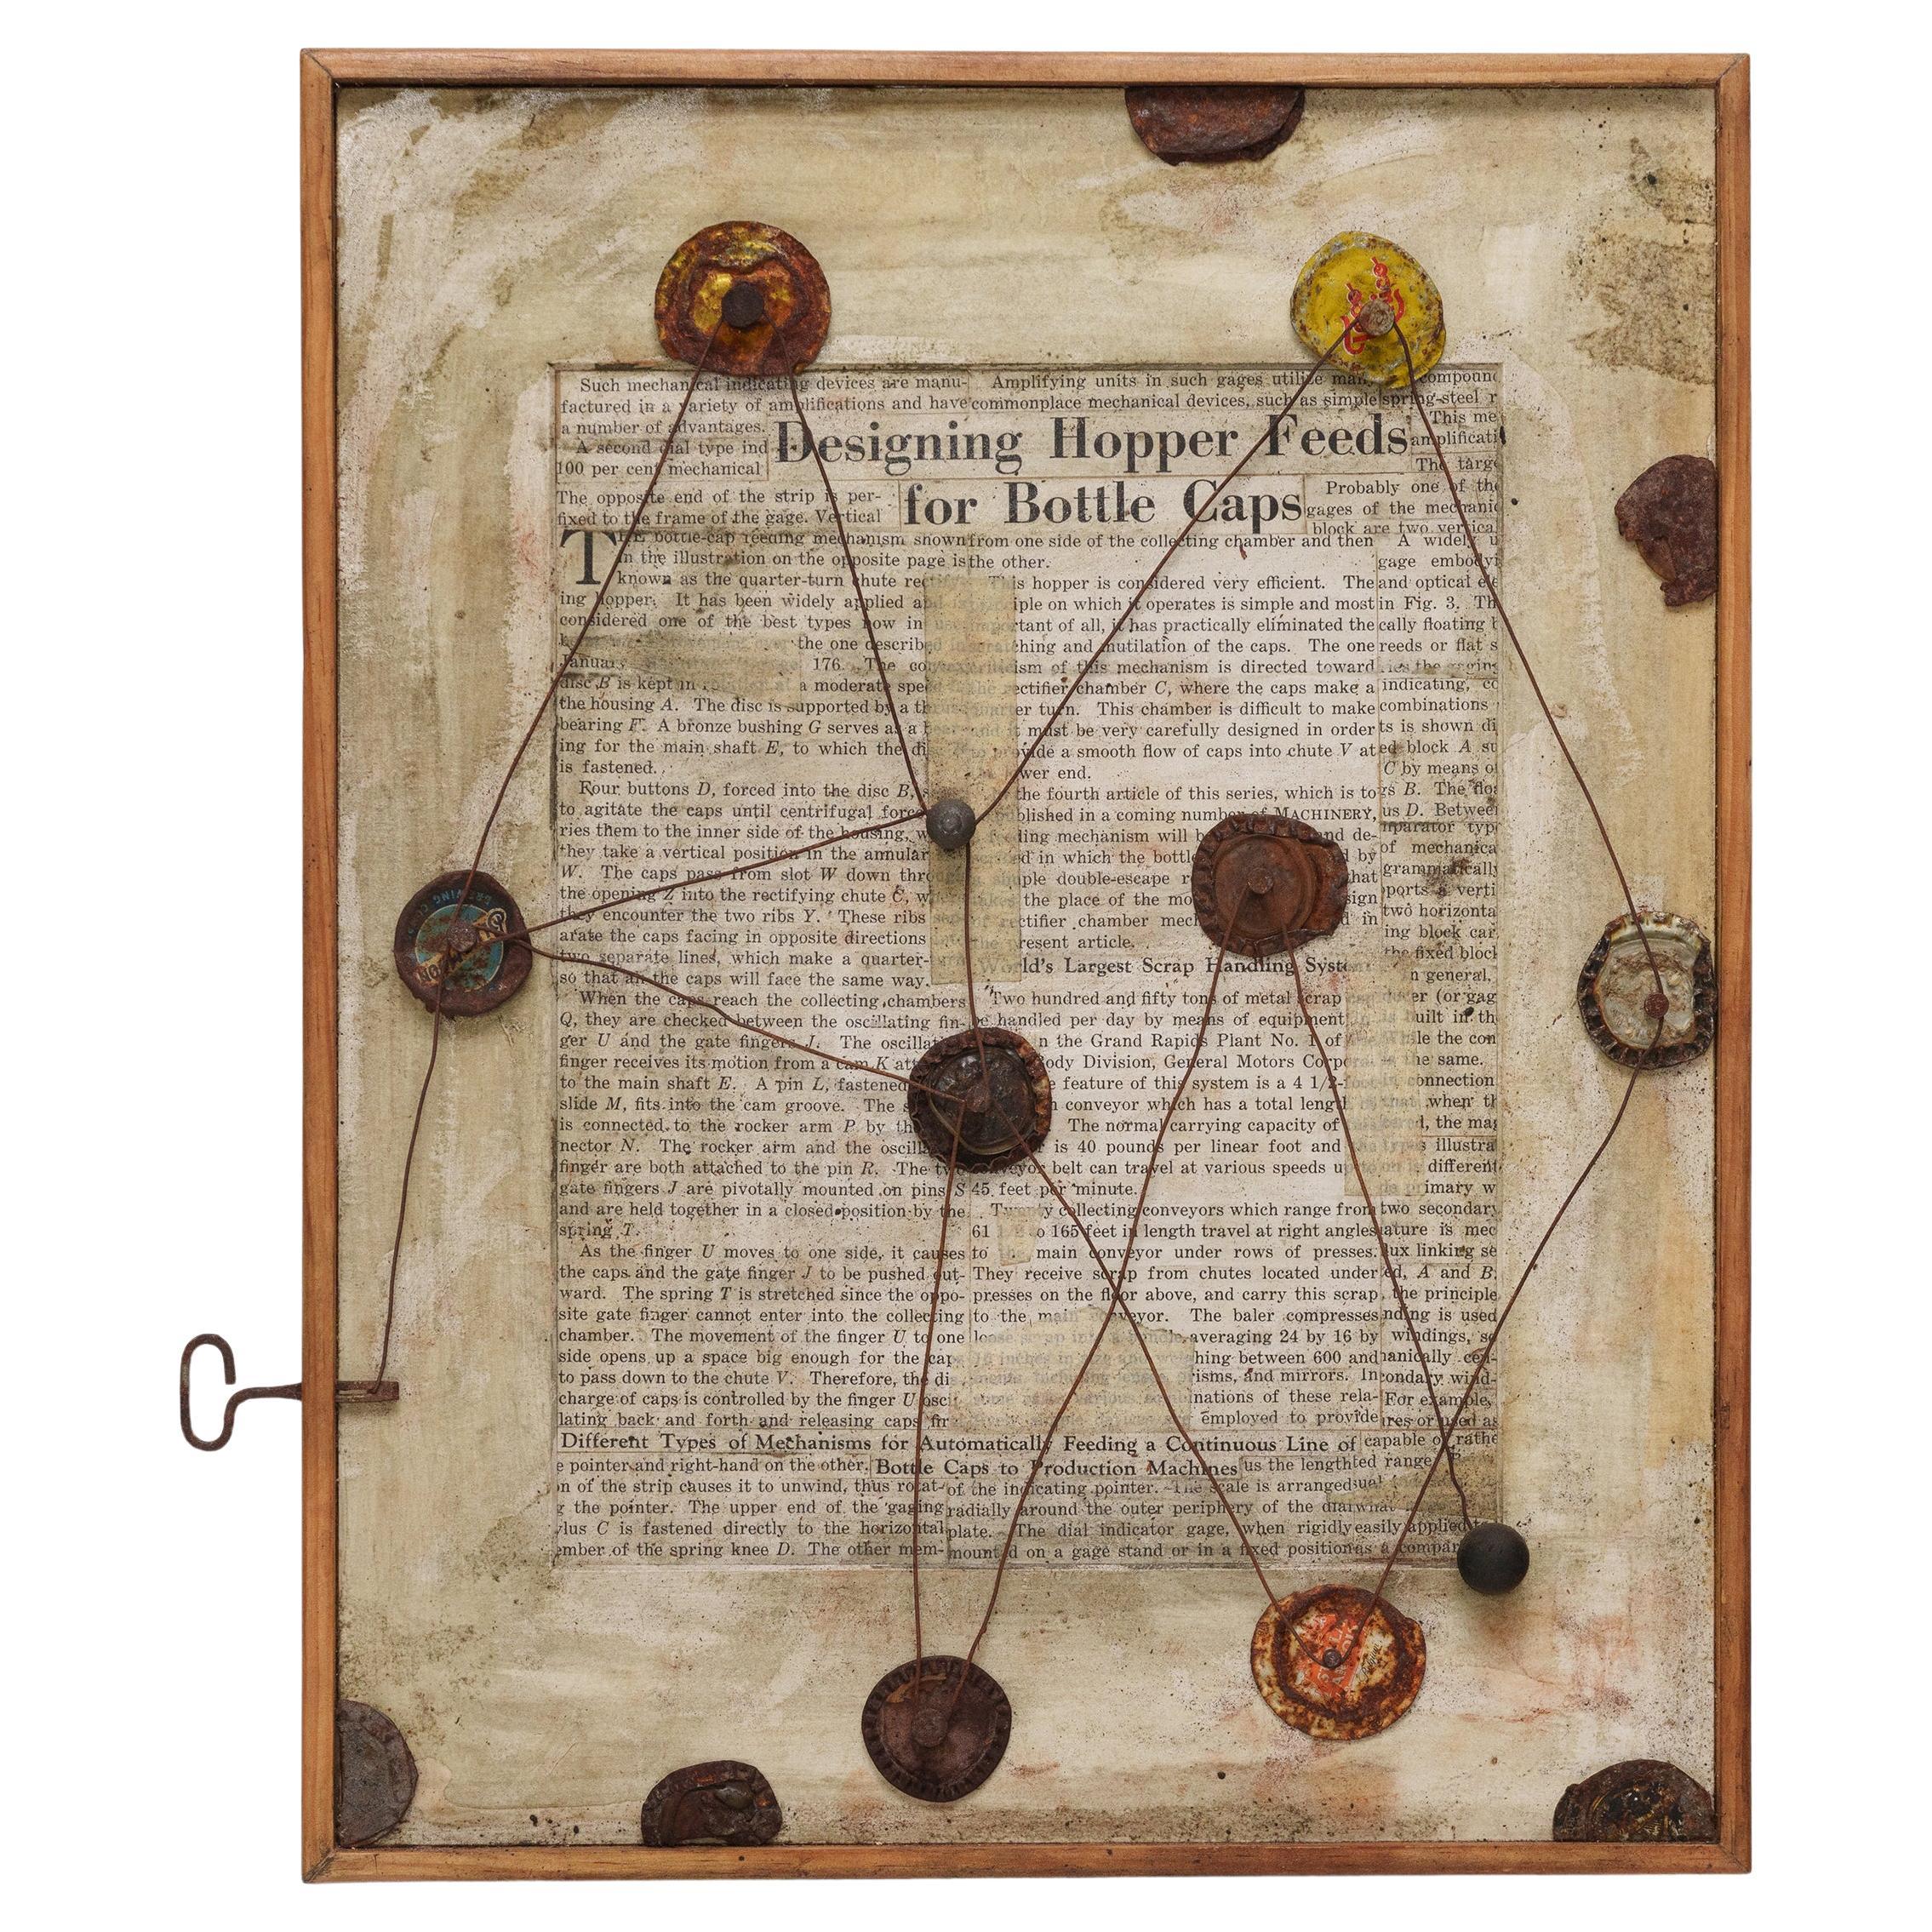 Such mechanical indicating devices are manu-
factured in a variety of amplifications and have
a number of advantages.
A second dial type ind
100 per cent mechanical
The opposite end of the strip is per-
fixed to the frame of the gage. Vertical
Amplifying units in such gages utilize many
commonplace mechanical devices, such as simple
compound
spring-steel r
This me
amplificati
The targe
Designing Hopper Feeds
for Bottle Caps
Probably one of the
gages of the mechanic
block are two vertica
THE bottle-cap feeding mechanism shown
in the illustration on the opposite page is
known as the quarter-turn chute rec
ing hopper. It has been widely applied a
considered one of the best types now in
the one described
January 176. The co
disc B is kept in a moderate spee
the housing A. The disc is supported by a th
bearing F. A bronze bushing G serves as a
ing for the main shaft E, to which the di
is fastened.
Four buttons D, forced into the disc B,
to agitate the caps until centrifugal force
ries them to the inner side of the housing, w
they take a vertical position in the annular
W. The caps pass from slot W down thro
the opening Z into the rectifying chute C, w
they encounter the two ribs Y. These ribs
arate the caps facing in opposite directions
two separate lines, which make a quarter-
so that all the caps will face the same way.
When the caps reach the collecting chambers
Q, they are checked between the oscillating fin-
ger U and the gate fingers J. The oscillat
finger receives its motion from a cam K att
to the main shaft E. A pin L, fastened
slide M, fits into the cam groove. The s
is connected to the rocker arm P by th
nector N. The rocker arm and the oscilla
finger are both attached to the pin R. The two
gate fingers J are pivotally mounted on pins S
and are held together in a closed position by the
spring T.
As the finger U moves to one side, it causes
the caps and the gate finger J to be pushed out-
ward. The spring T is stretched since the oppo-
site gate finger cannot enter into the collecting
chamber. The movement of the finger U to one
side opens up a space big enough for the cap
to pass down to the chute V. Therefore, the dis
charge of caps is controlled by the finger U osci
lating back and forth and releasing caps fir
from one side of the collecting chamber and then
the other.
This hopper is considered very efficient. The
iple on which it operates is simple and most
important of all, it has practically eliminated the
scratching and mutilation of the caps. The one
criticism of this mechanism is directed toward
the rectifier chamber C, where the caps make a
quarter turn. This chamber is difficult to make
and it must be very carefully designed in order
to provide a smooth flow of caps into chute V at
lower end.
the fourth article of this series, which is to
blished in a coming number of MACHINERY,
ding mechanism will b and de-
ed in which the bottle by
simple double-escape r that
takes the place of the mo sign
rectifier chamber mec d in
the present article.
World's Largest Scrap Handling Syste
Two hundred and fifty tons of metal scrap
be handled per day by means of equipment
n the Grand Rapids Plant No. 1 of
Body Division, General Motors Corpora
e feature of this system is a 4 1/2-
conveyor which has a total length
The normal carrying capacity of
is 40 pounds per linear foot and
conveyor belt can travel at various speeds up to
45 feet per minute.
Twenty collecting conveyors which range from
61 1/2 to 165 feet in length travel at right angles
to main conveyor under rows of presses.
They receive scrap from chutes located under
presses on the floor above, and carry this scrap
to the main conveyor. The baler compresses
loose scrap into averaging 24 by 16 by
16 inches in size and weighing between 600 and
risms, and mirrors. In
nations of these rela-
employed to provide
A widely u
gage embodyi
and optical ele
in Fig. 3. Th
cally floating b
reeds or flat s
the gaging
indicating, co
combinations
ts is shown di
ed block A su
C by means of
gs B. The floa
us D. Between
mparator type
of mechanica
grammatically
pports a verti
two horizonta
ing block car
the fixed block
n general,
er (or gag
uilt in th
While the con
the same.
connection
when th
ed, the mag
types illustra
different
primary w
two secondary
ature is mec
flux linking se
ed, A and B,
the principle
nding is used
windings, se
hanically cen-
condary wind-
For example,
ires or used as
capable of rathe
ted range.
Different Types of Mechanisms for Automatically Feeding a Continuous Line of
Bottle Caps to Production Machines
e pointer and right-hand on the other.
on of the strip causes it to unwind, thus rotat-
g the pointer. The upper end of the gaging
ylus C is fastened directly to the horizontal
ember of the spring knee D. The other mem-
us the length
of the indicating pointer. The scale is arranged
radially around the outer periphery of the dial
plate. The dial indicator gage, when rigidly
mounted on a gage stand or in a fixed position
easily applied to
as a compar